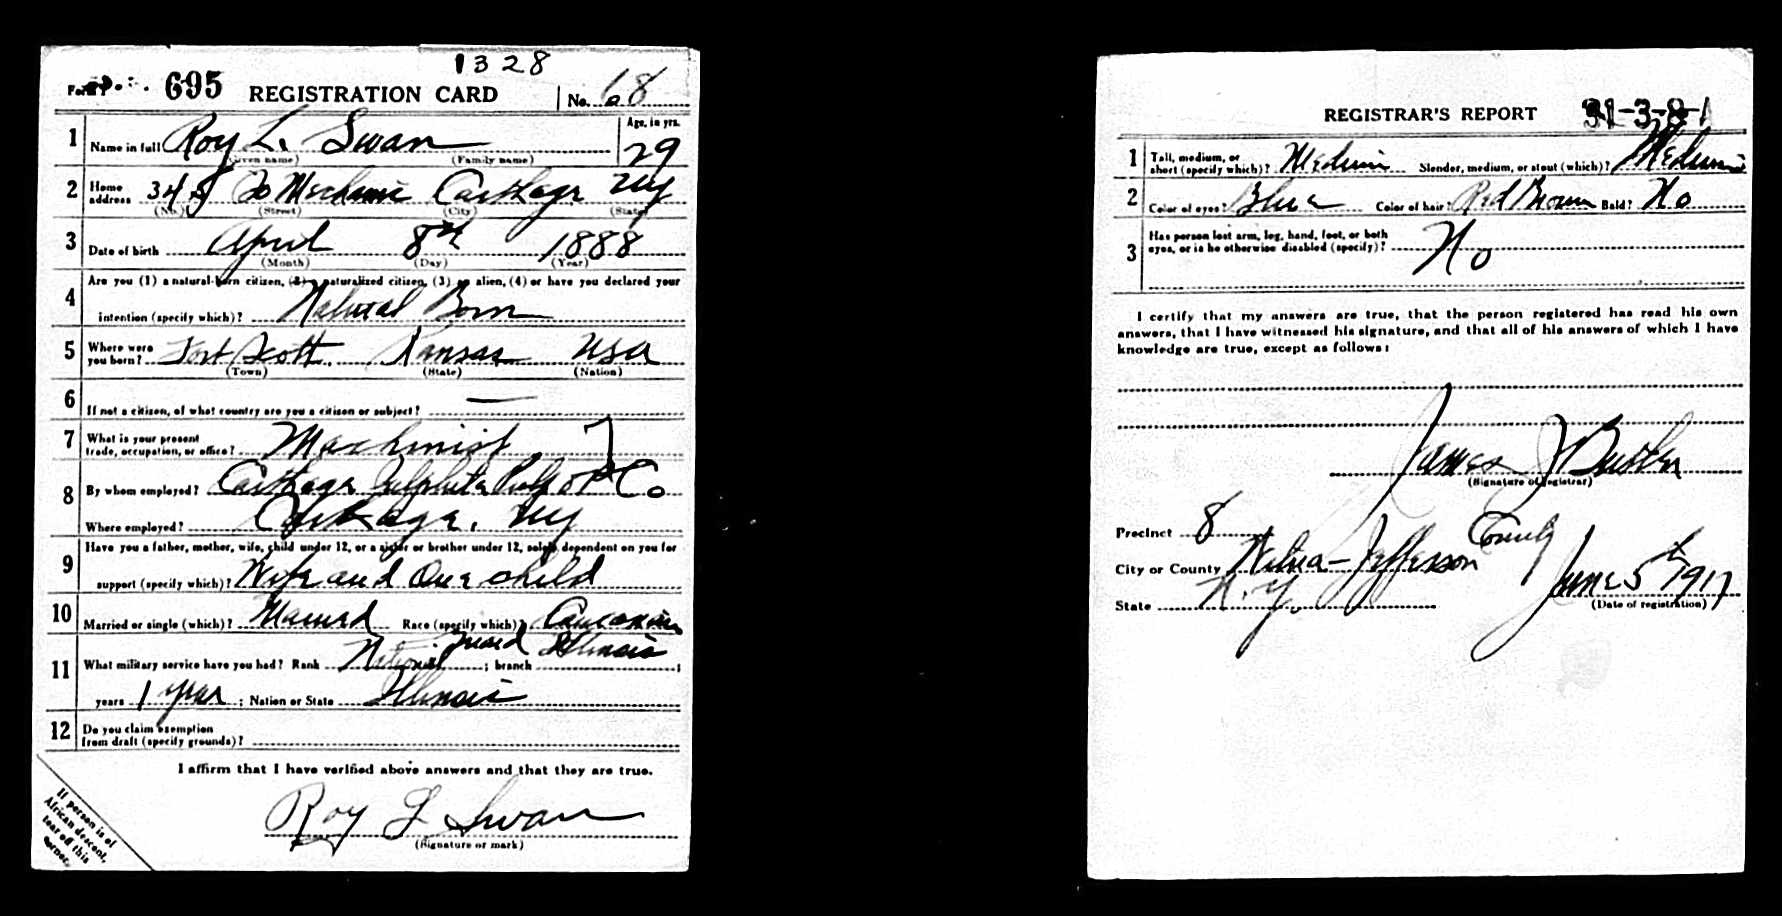 1328
Form 1 695 REGISTRATION CARD No. 68
1 Name in full Roy L. Swan Age, in yrs. 29
(Given name) (Family name)
2 Home address 345 So Mechanic Carthage NY
(No.) (Street) (City) (State)
3 Date of birth April 8th 1888
(Month) (Day) (Year)
4 Are you (1) a natural-born citizen, (2) a naturalized citizen, (3) an alien, (4) or have you declared your
intention (specify which)? Natural Born
5 Where were you born? Fort Scott, Kansas USA
(Town) (State) (Nation)
6 If not a citizen, of what country are you a citizen or subject? —
7 What is your present trade, occupation, or office? Machinist 7
8 By whom employed? Carthage Sulphite Pulp & P Co
Where employed? Carthage, NY
9 Have you a father, mother, wife, child under 12, or a sister or brother under 12, solely dependent on you for
support (specify which)? Wife and One child
10 Married or single (which)? Married Race (specify which)? Caucasian
11 What military service have you had? Rank National Guard ; branch Illinois ;
years 1 year ; Nation or State Illinois
12 Do you claim exemption
from draft (specify grounds)?
I affirm that I have verified above answers and that they are true.
Roy L Swan
(Signature or mark)
If person is of
African descent,
tear off this
corner.
REGISTRAR'S REPORT 31-3-8-1
1 Tall, medium, or short (specify which)? Medium Slender, medium, or stout (which)? Medium
2 Color of eyes? Blue Color of hair? Red Brown Bald? No
3 Has person lost arm, leg, hand, foot, or both
eyes, or is he otherwise disabled (specify)? No
I certify that my answers are true, that the person registered has read his own
answers, that I have witnessed his signature, and that all of his answers of which I have
knowledge are true, except as follows:
James J
(Signature of registrar)
Precinct 8
City or County Wilna - Jefferson County
State N.Y. June 5th 1917
(Date of registration)